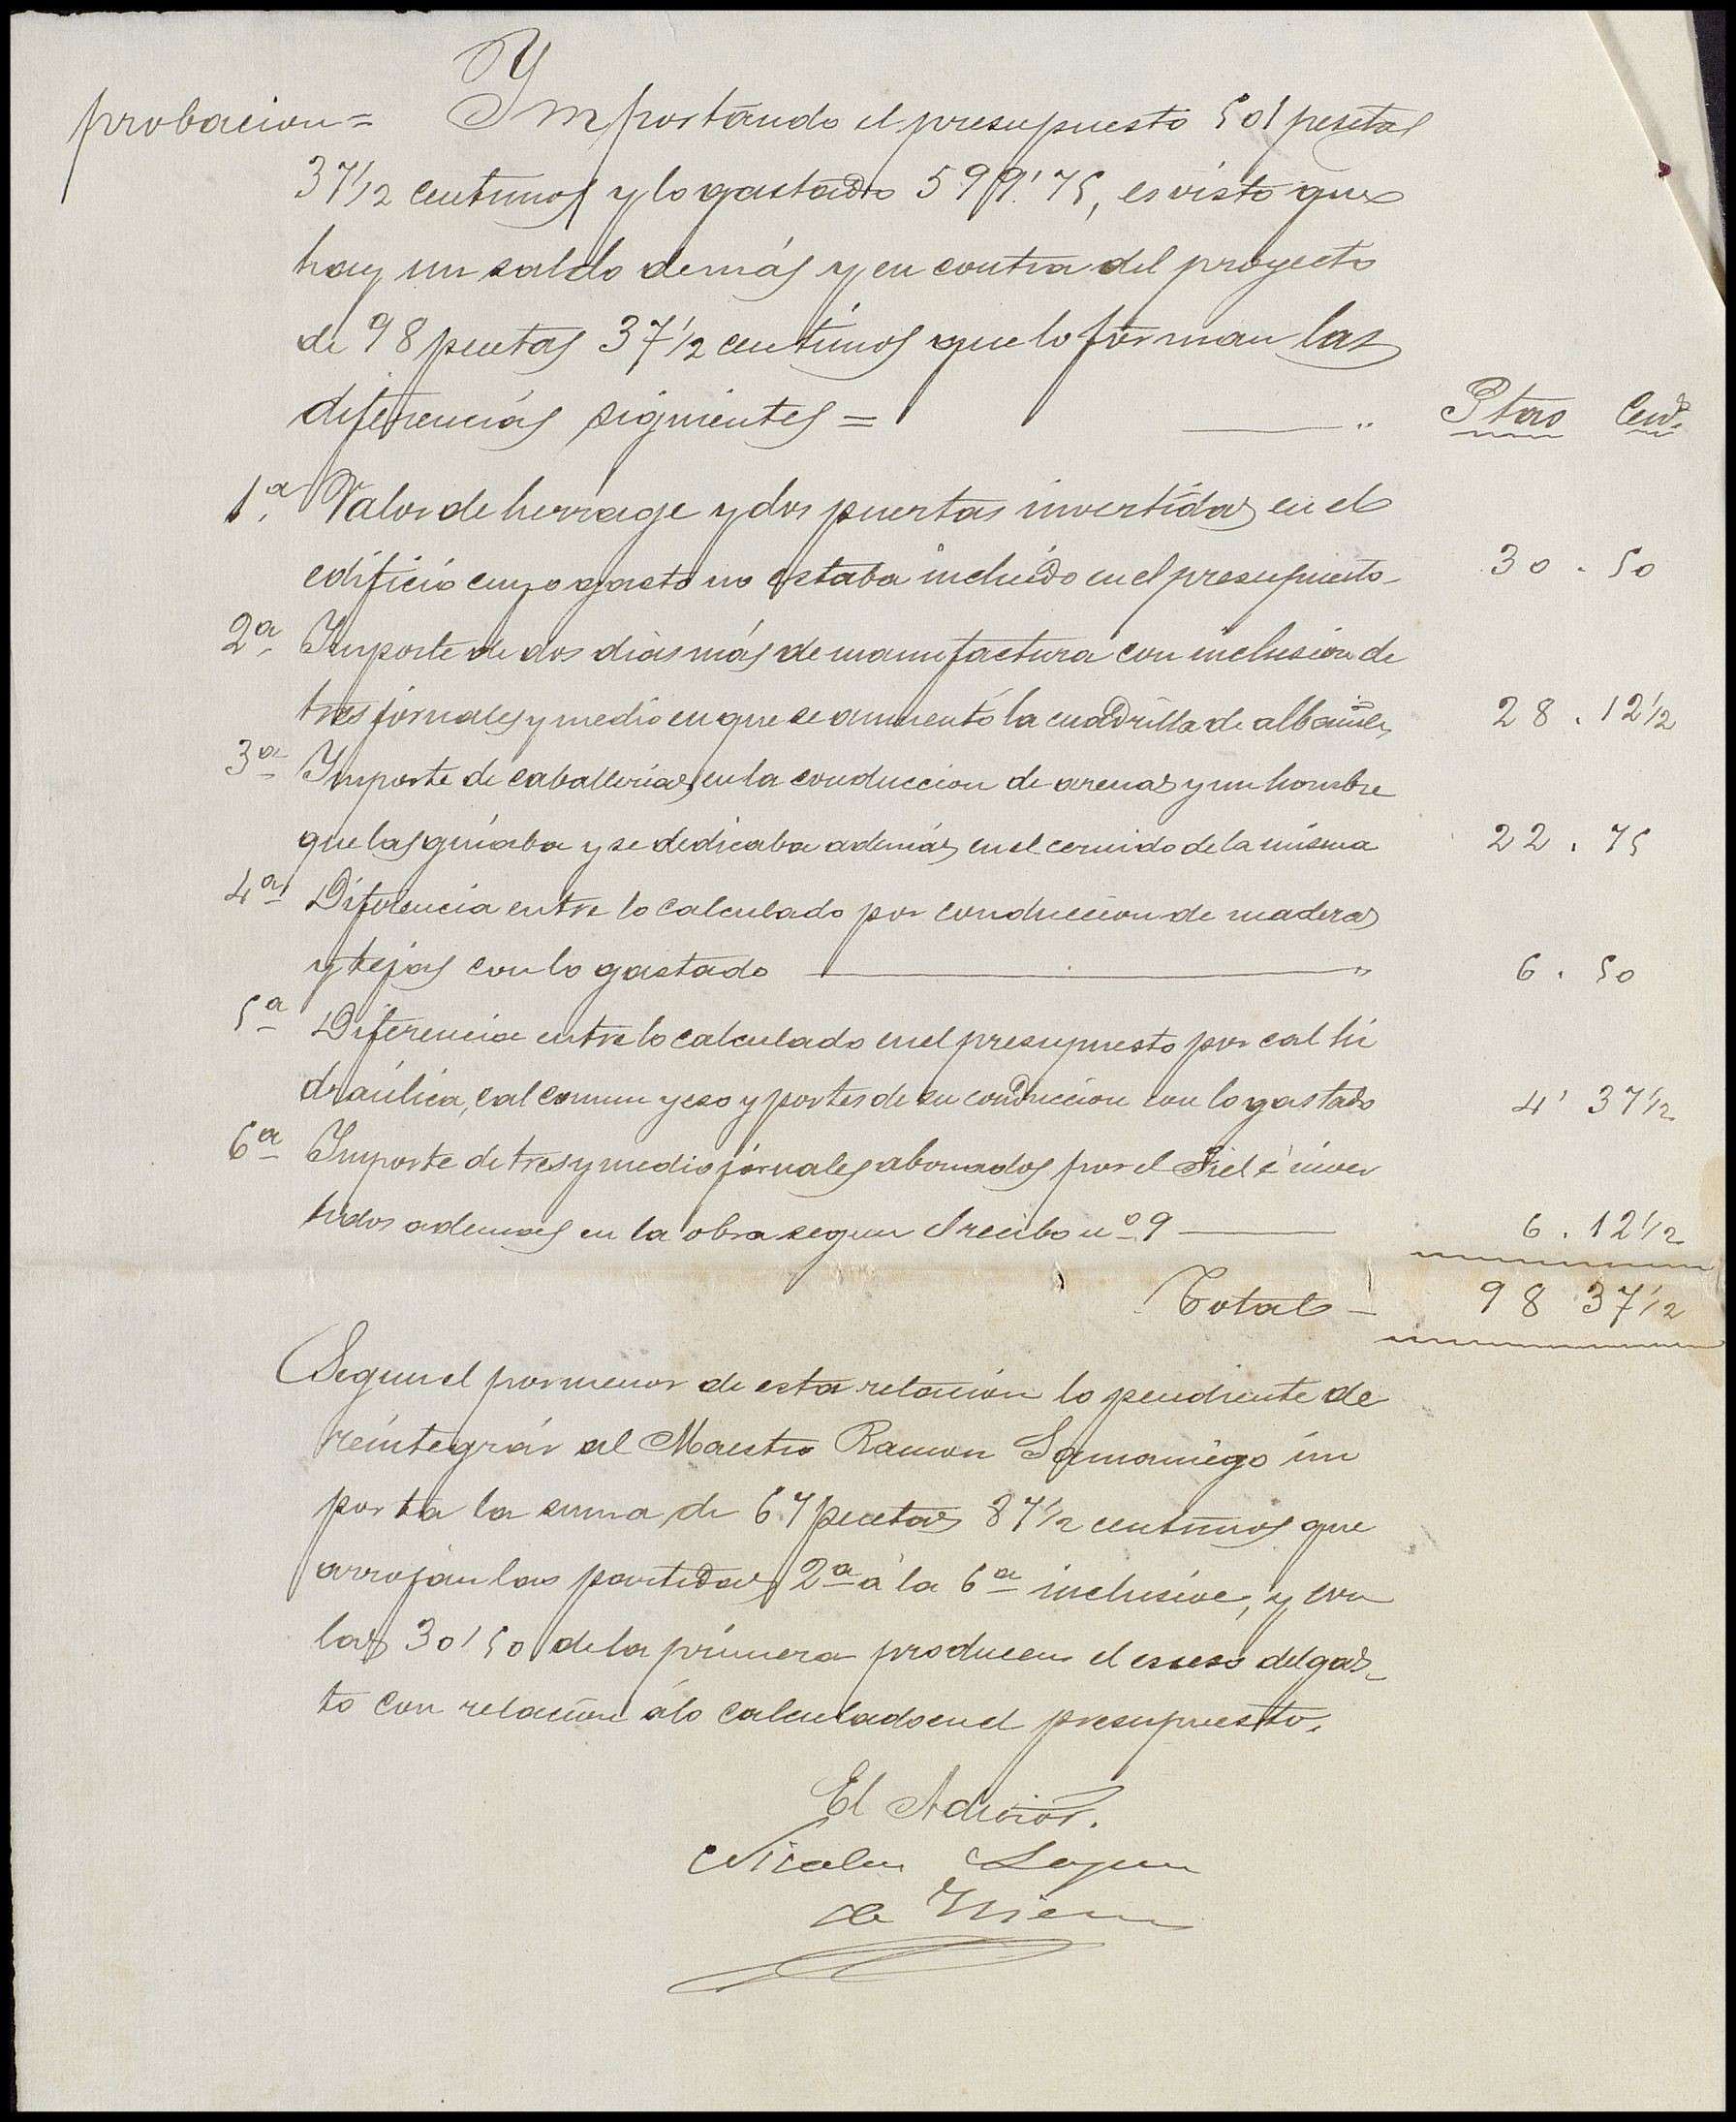 probacion= Ymportando el presupuesto 501 pesetas
37 1/2 centimos y lo gastado 599'75, es visto que
hay un saldo demás y en contra del proyecto
de 98 pesetas 37 1/2 centimos que lo forman las
diferencias siguientes = Ptas Cents.
1.a Valor de herrage y dos puertas invertidas en el
edificio cuyo gasto no estaba incluido en el presupuesto_ 30 . 50
2.a Ymporte de dos dias más de manufactura con inclusion de
tres jornales y medio en que se aumentó la cuadrilla de albañiles 28 . 12 1/2
3.a Ymporte de caballerias en la conduccion de arenas y un hombre
que las guiaba y se dedicaba además en el cernido de la misma 22 . 75
4.a Diferencia entre lo calculado por conduccion de maderas
y tejas con lo gastado 6 . 50
5.a Diferencia entre lo calculado en el presupuesto por cal hi
draúlica, cal comun yeso y portes de su conduccion con lo gastado 4' 37 1/2
6.a Ymporte de tres y medio jornales abonados por el Fiel é inver
tidos ademas en la obra segun el recibo nº 9 6 . 12 1/2
Total _ 98 37 1/2
Segun el pormenor de esta relación lo pendiente de
reintegrár al Maestro Ramon Samaniego im
porta la suma de 67 pesetas 87 1/2 centimos que
arrojan las partidas 2.a á la 6.a inclusive, y con
las 30'50 de la primera producen el exceso del gas_
to con relacion á lo calculado en el presupuesto.
El Admor.
Nicolas
de